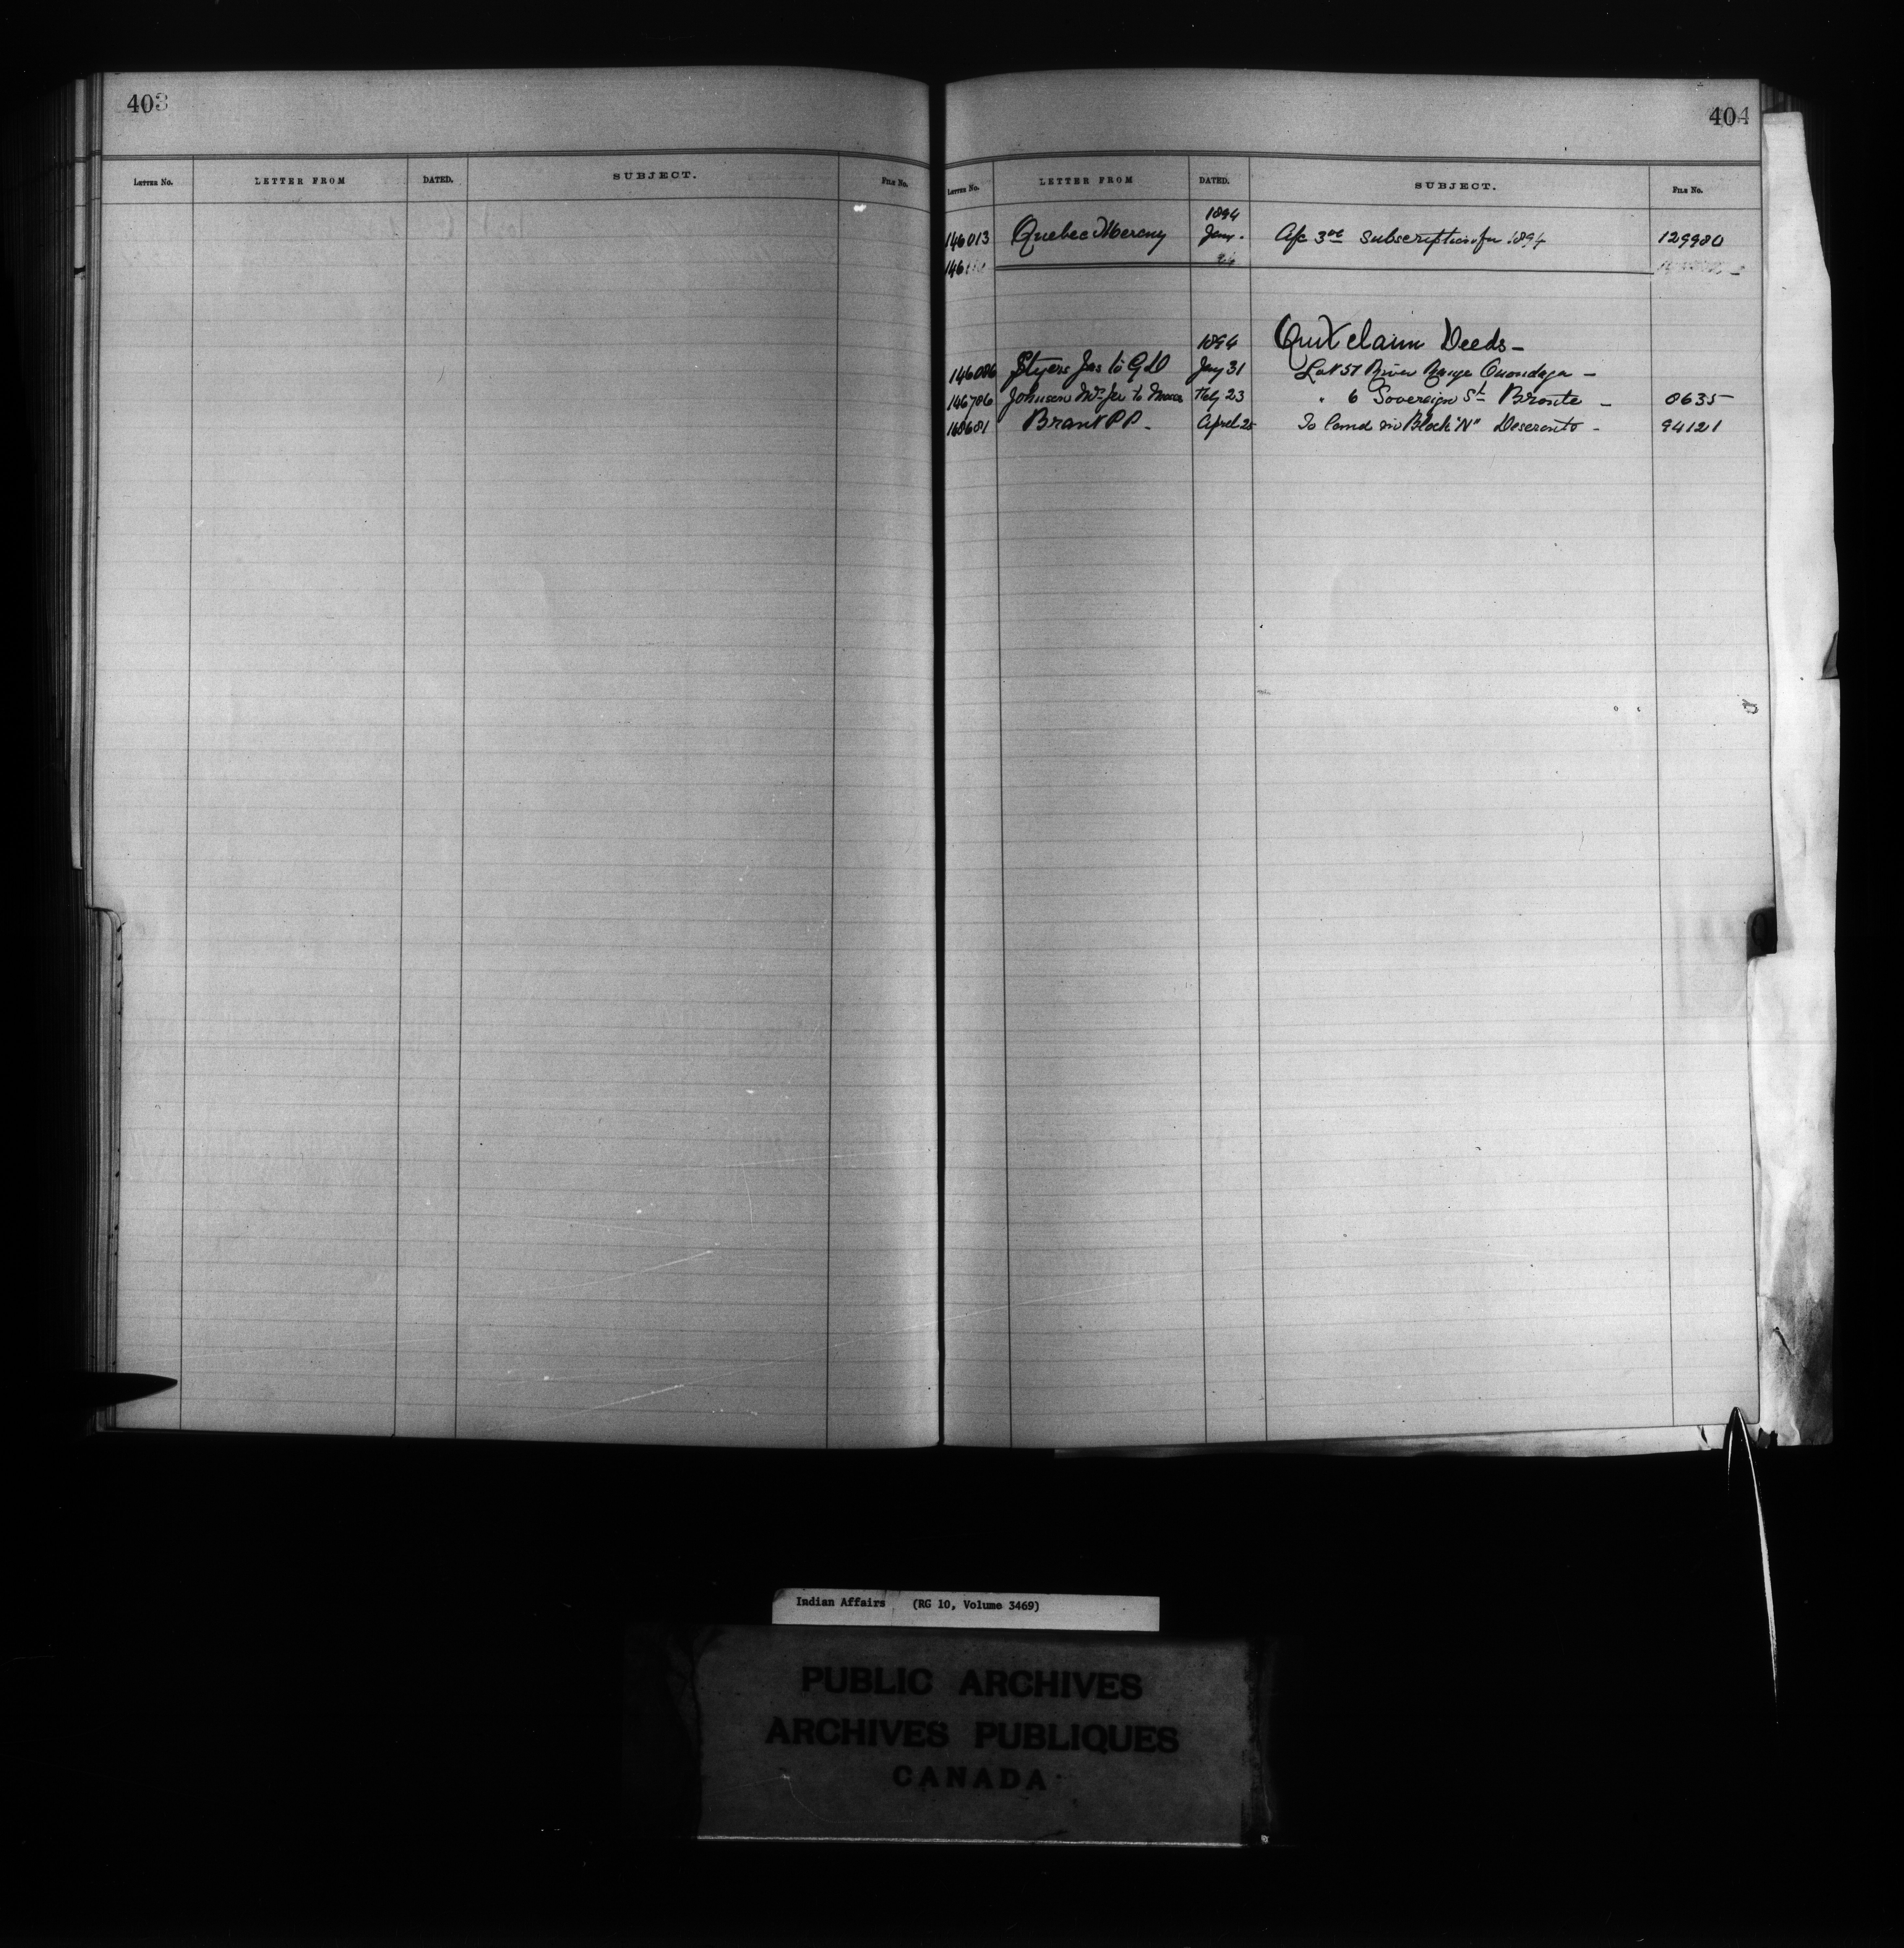 403
LETTER NO. LETTER FROM DATED. SUBJECT. FILE NO.
404
LETTER NO. LETTER FROM DATED. SUBJECT. FILE NO.
1894
146013 Quebec Mercury Jany. A/c 3.00 subscription for 1894 129980
1894 Quit claim Deeds -
146086 Styers Jas to G D Jany 31 Lot 57 River Range Onondaga -
146786 Johnson Wm Jr to Feby 23 " 6 Sovereign St Bronte - 8635
148681 Brant P P - April 25 To land in Block "N" Deseronto - 94121
Indian Affairs (RG 10, Volume 3469)
PUBLIC ARCHIVES
ARCHIVES PUBLIQUES
CANADA